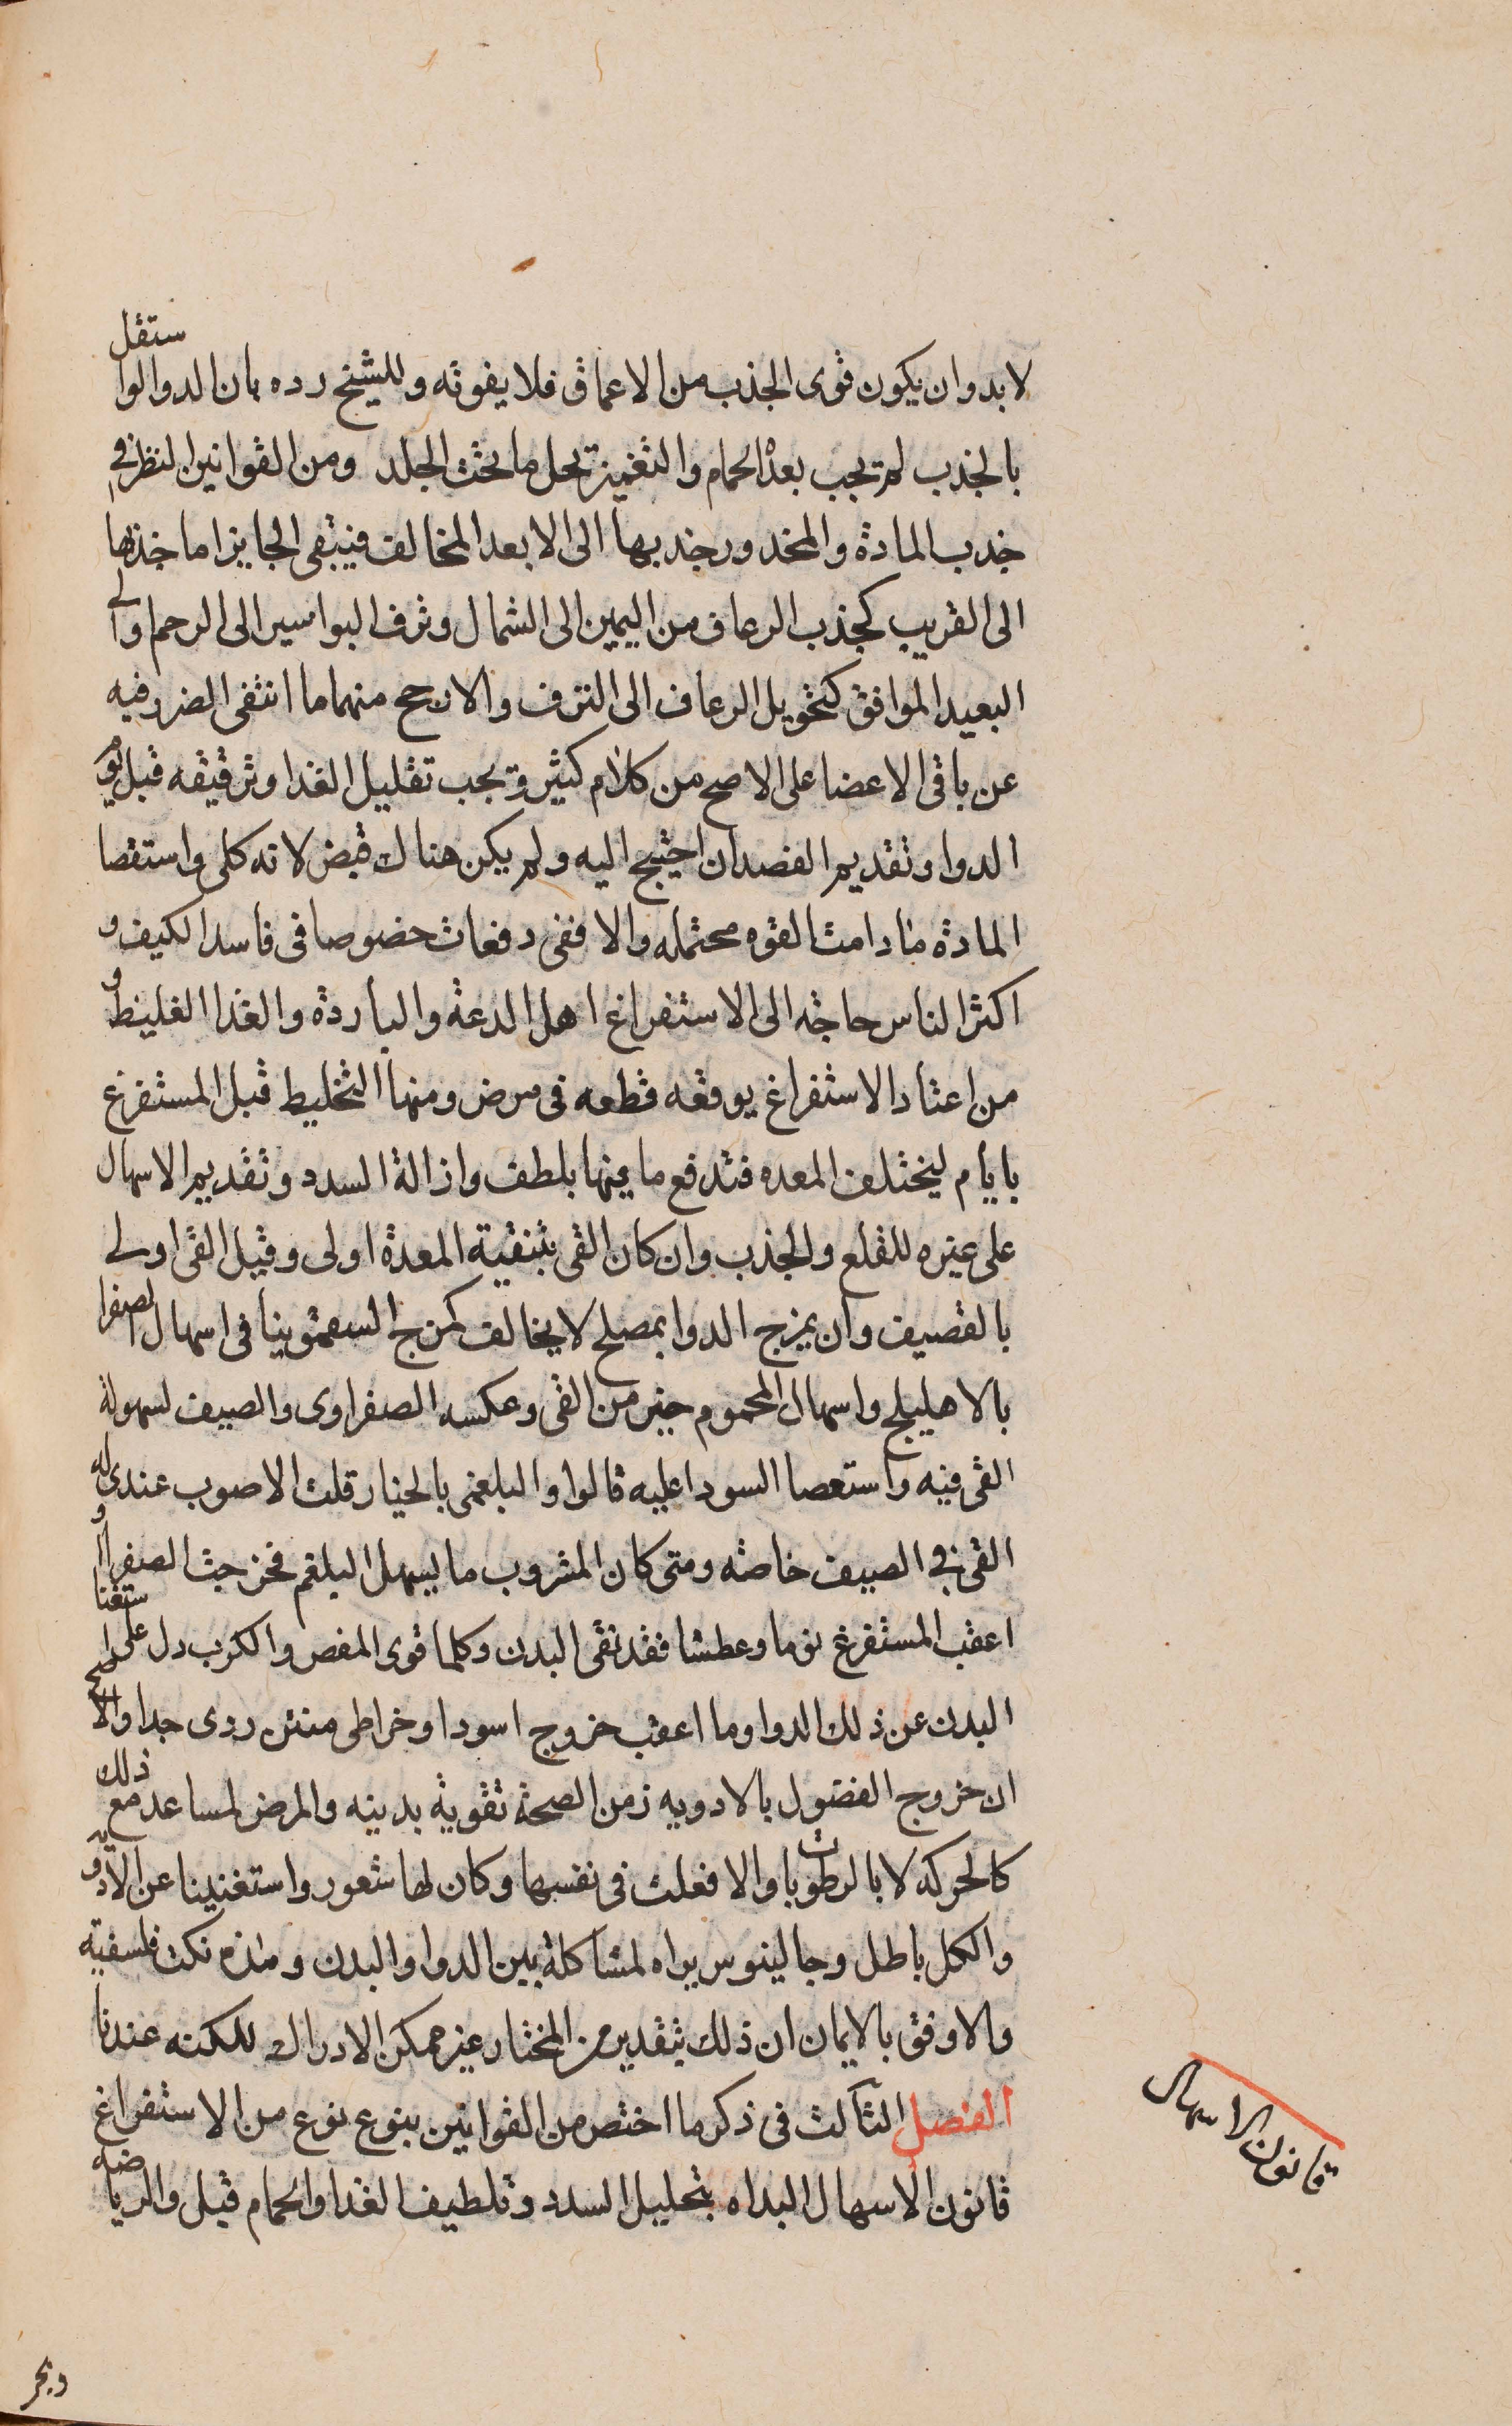 لا بد وان يكون قوى الجذب من الاعماق فلا يفوته وللشيخ رده بان الدوا لو استقل
بالجذب لم تجب بعده الحمام والتغميز تحل ما تحت الجلد ومن القوانين النظر في
جذب المادة والمحذور جذبها الى الابعد المخالف فيبقى الجايز اما جذبها
الى القريب كجذب الرعاف من اليمين الى الشمال ونزف البواسير الى الرحم والى
البعيد الموافق كتحويل الرعاف الى النزف والارجح منهما ما انتفى الضرر فيه
عن باقى الاعضا على الاصح من كلام كثير ويجب تقليل الغدا وترقيقه قبل يوم
الدوا وتقديم الفصد ان احتيج اليه ولم يكن هناك قبض لانه كلى واستقصا
المادة ما دامت القوه محتمله والا ففى دفعات خصوصا فى فاسد الكيف و
اكثر الناس حاجته الى الاستفراغ اهل الدعة والباردة والغدا الغليظ و
من اعتاد الاستفراغ يوقعه قطعه فى مرض ومنها التخليط قبل المستفرغ
بايام ليختلف المعده فتدفع ما فيها بلطف وازالة السدد وتقديم الاسهال
على غيره للقلع والجذب وان كان القى بتنقية المعدة اولى وقيل القى اولى
بالقصيف وان يمزج الدوا بمصلح لا يخالف كمزج السقمونيا فى اسهال الصفرا
بالاهليلج واسهال المحموم خير من القى وعكسه الصفراوى والصيف لسهولة
القى فيه واستعصا السودا عليه قالوا والبلغمى بالخيار قلت الاصوب عندى له
القى في الصيف خاصه ومتى كان المشروب ما يسهل البلغم فخرجت الصفرا او
اعقب المستفرغ نوما وعطشا فقد نقى البدن وكلما قوى المغص والكرب دل على استغنا
البدن عن ذلك الدوا وما اعقب خروج اسود او خراطى منتن ردى جدا والاصح
ان خروج الفضول بالادويه زمن الصحة تقوية بدينه والمرض لمساعد مع ذلك
كالحركه لا بالرطوبات والا فعلت فى نفسها وكان لها شعور واستغنينا عن الادويه
والكل باطل وجالينوس يراه لمشاكلة بين الدوا والبدن وهذه نكت فلسفية
والاوفق بالايمان ان ذلك بتقدير من المختار غير ممكن الادراك للكنه عندنا
الفصل الثالث فى ذكر ما اختص من القوانين بنوع نوع من الاستفراغ
قانون الاسهال البداه بتحليل السدد وتلطيف الغدا والحمام قبل والرياضه
قانون الاسهال